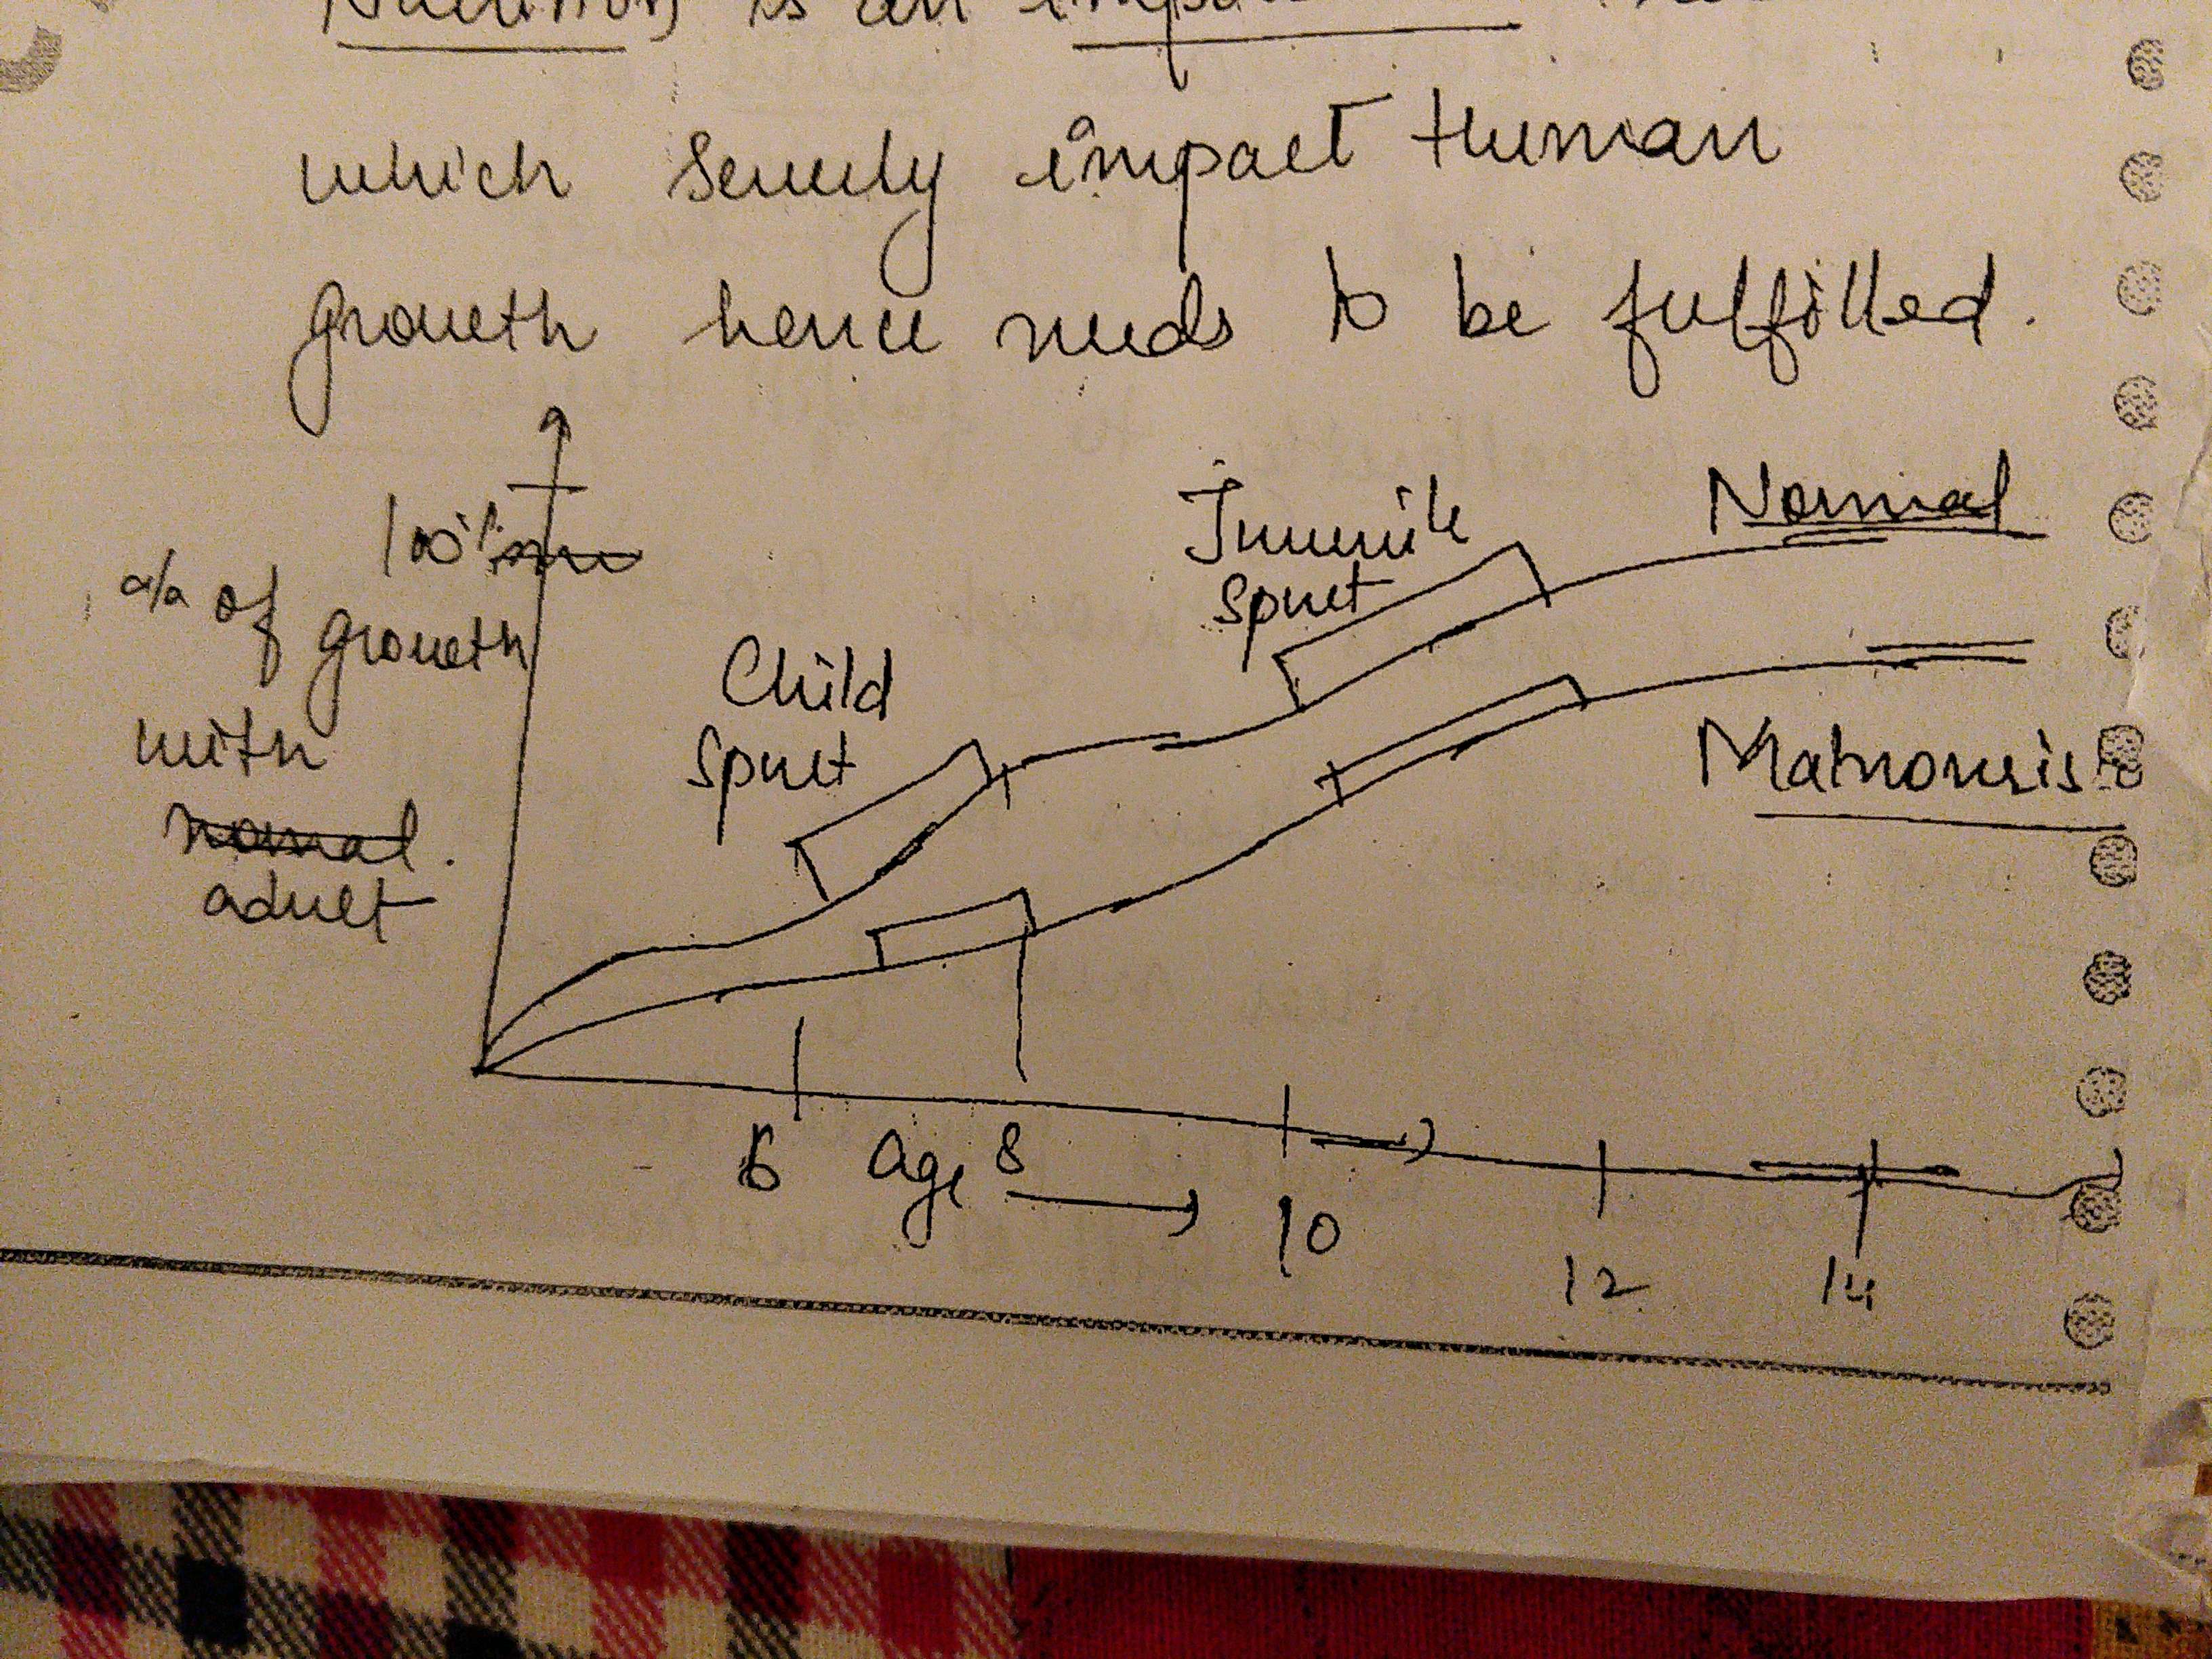 is an
which severly impact Human
growth hence needs to be fulfilled.
100%
% of growth
with
normal.
adult
Child
spurt
Juvenile
spurt
Normal
6 Age 8
10
12
14